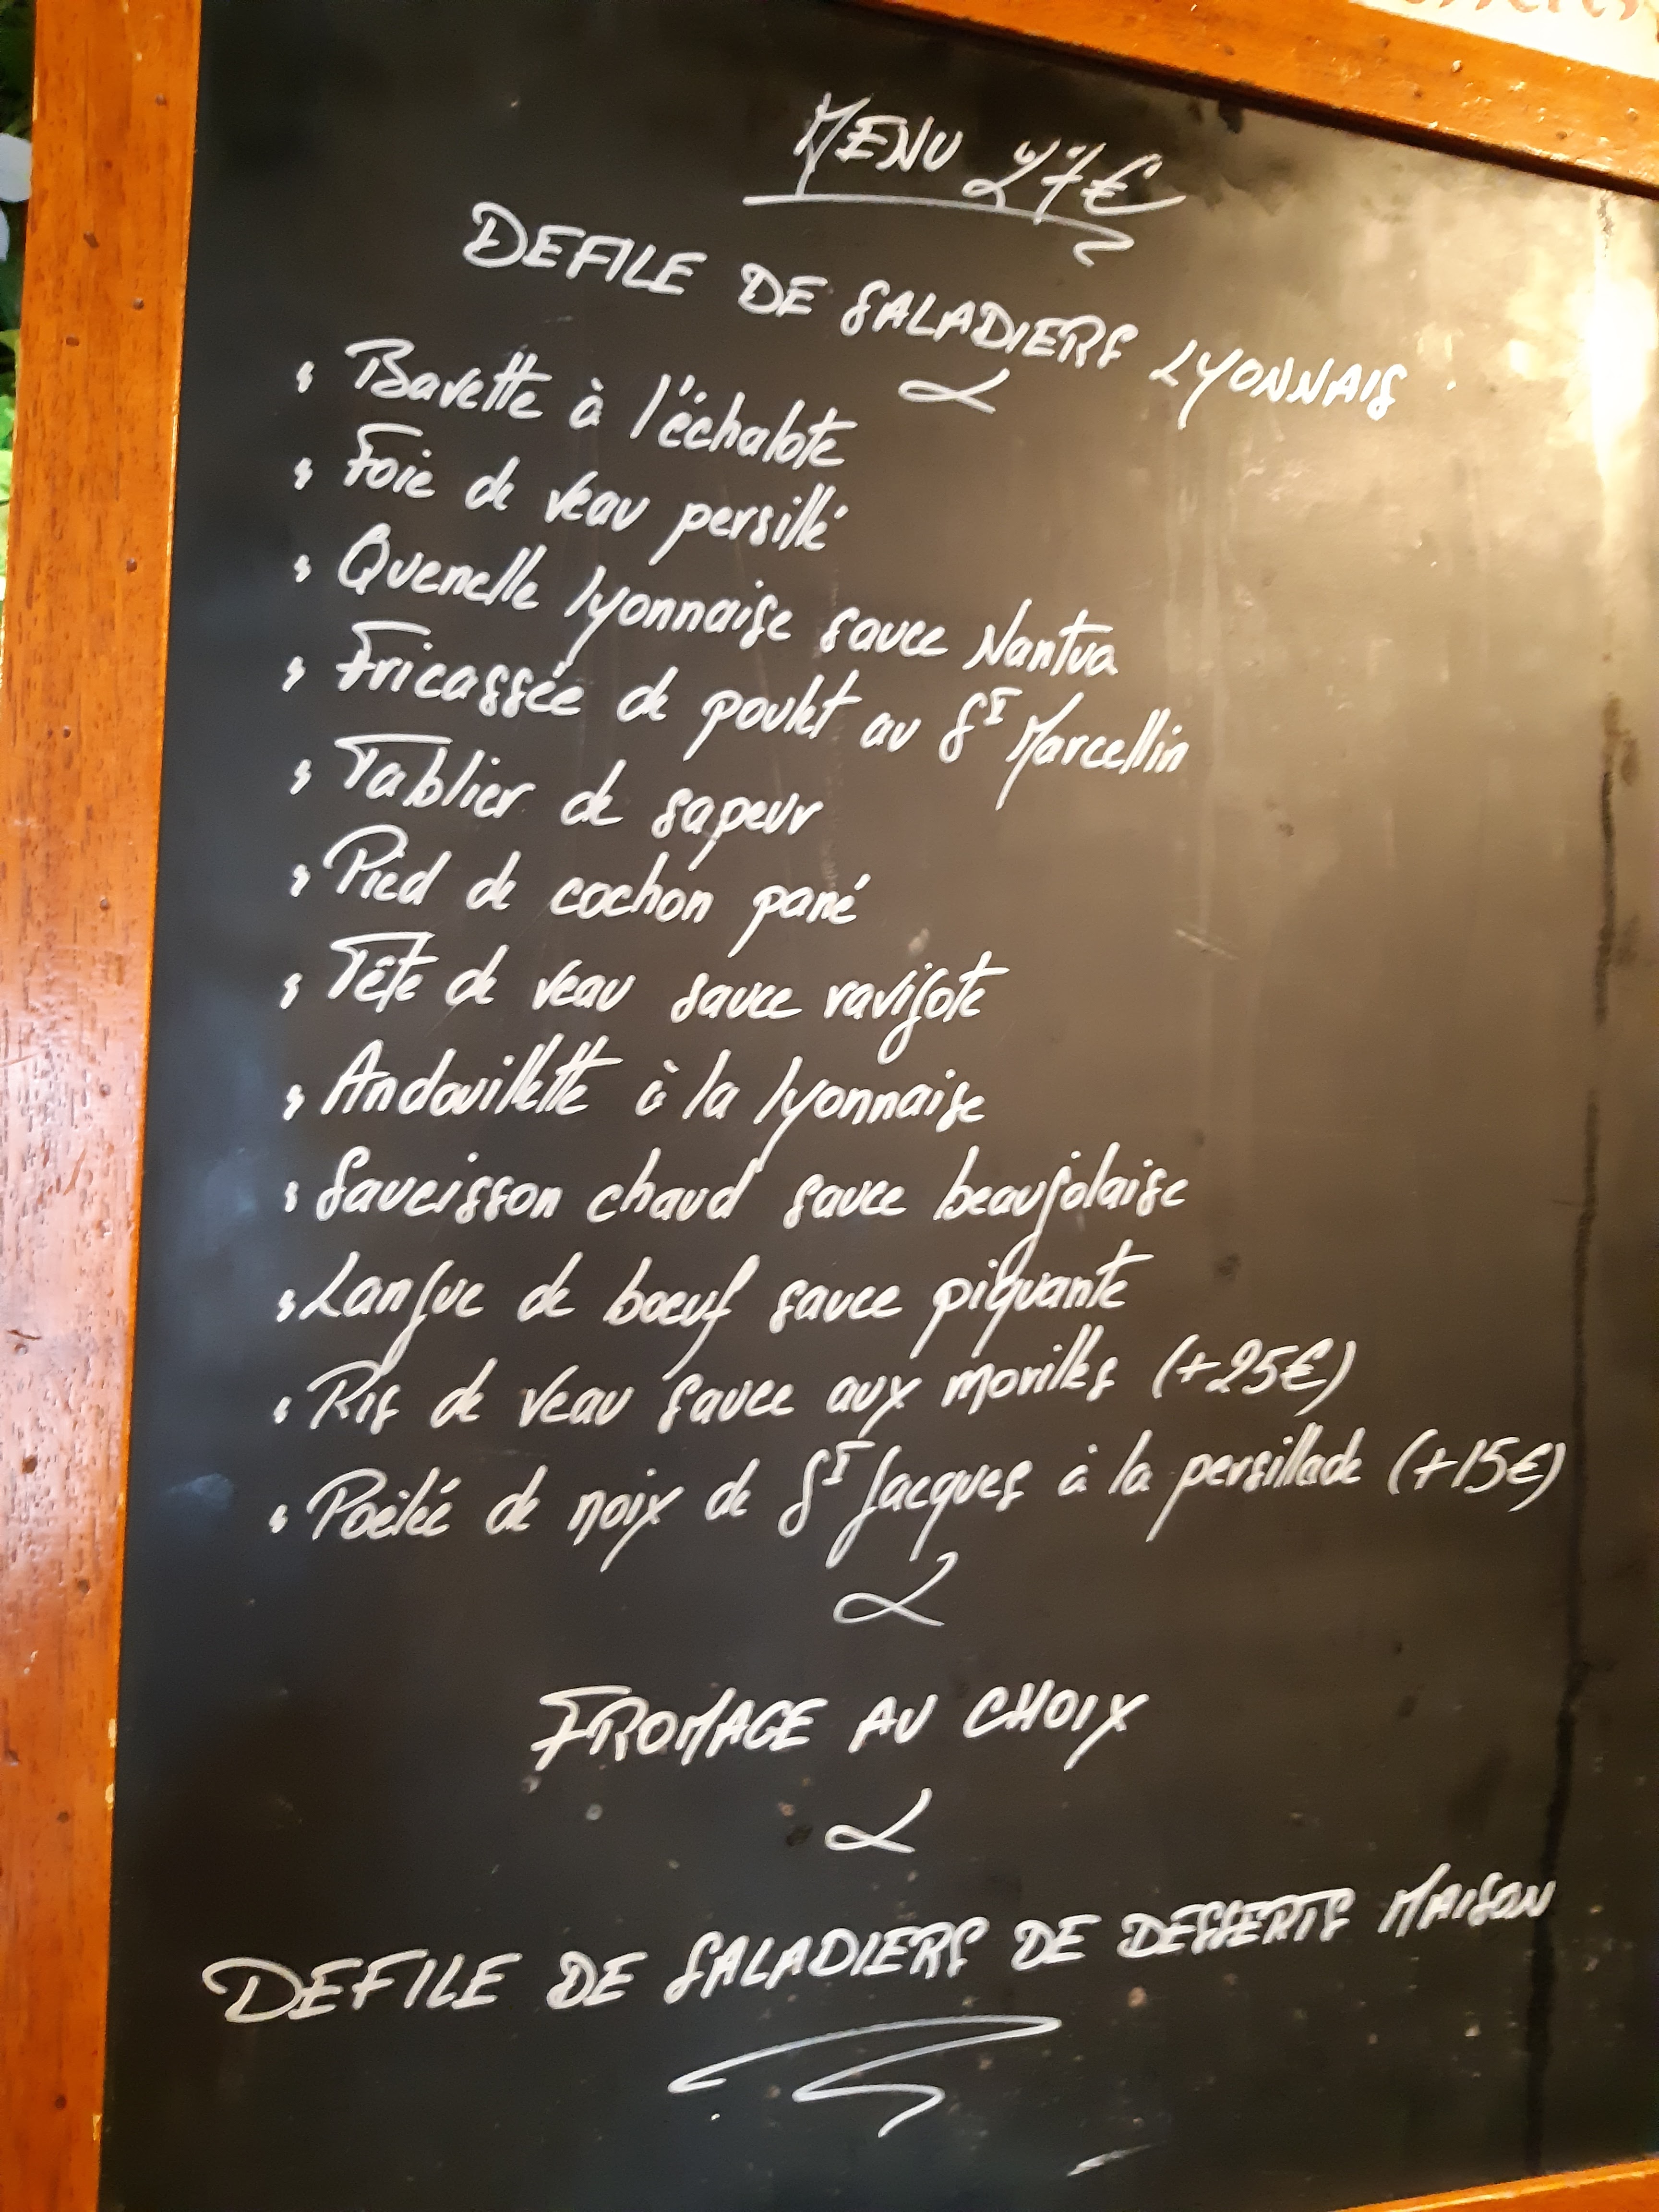 MENU 27€
DEFILE DE SALADIERS LYONNAIS
Bavette à l'échalote
Foie de veau persillé
Quenelle lyonnaise sauce Nantua
Fricassée de poulet au St Marcellin
Tablier de sapeur
Pied de cochon pané
Tête de veau sauce ravigote
Andouillette à la lyonnaise
Saucisson chaud sauce beaujolaise
Langue de boeuf sauce piquante
Ris de veau sauce aux morilles (+25€)
Poêlée de noix de St Jacques à la persillade (+15€)
FROMAGE AU CHOIX
DEFILE DE SALADIERS DE DESSERTS MAISON